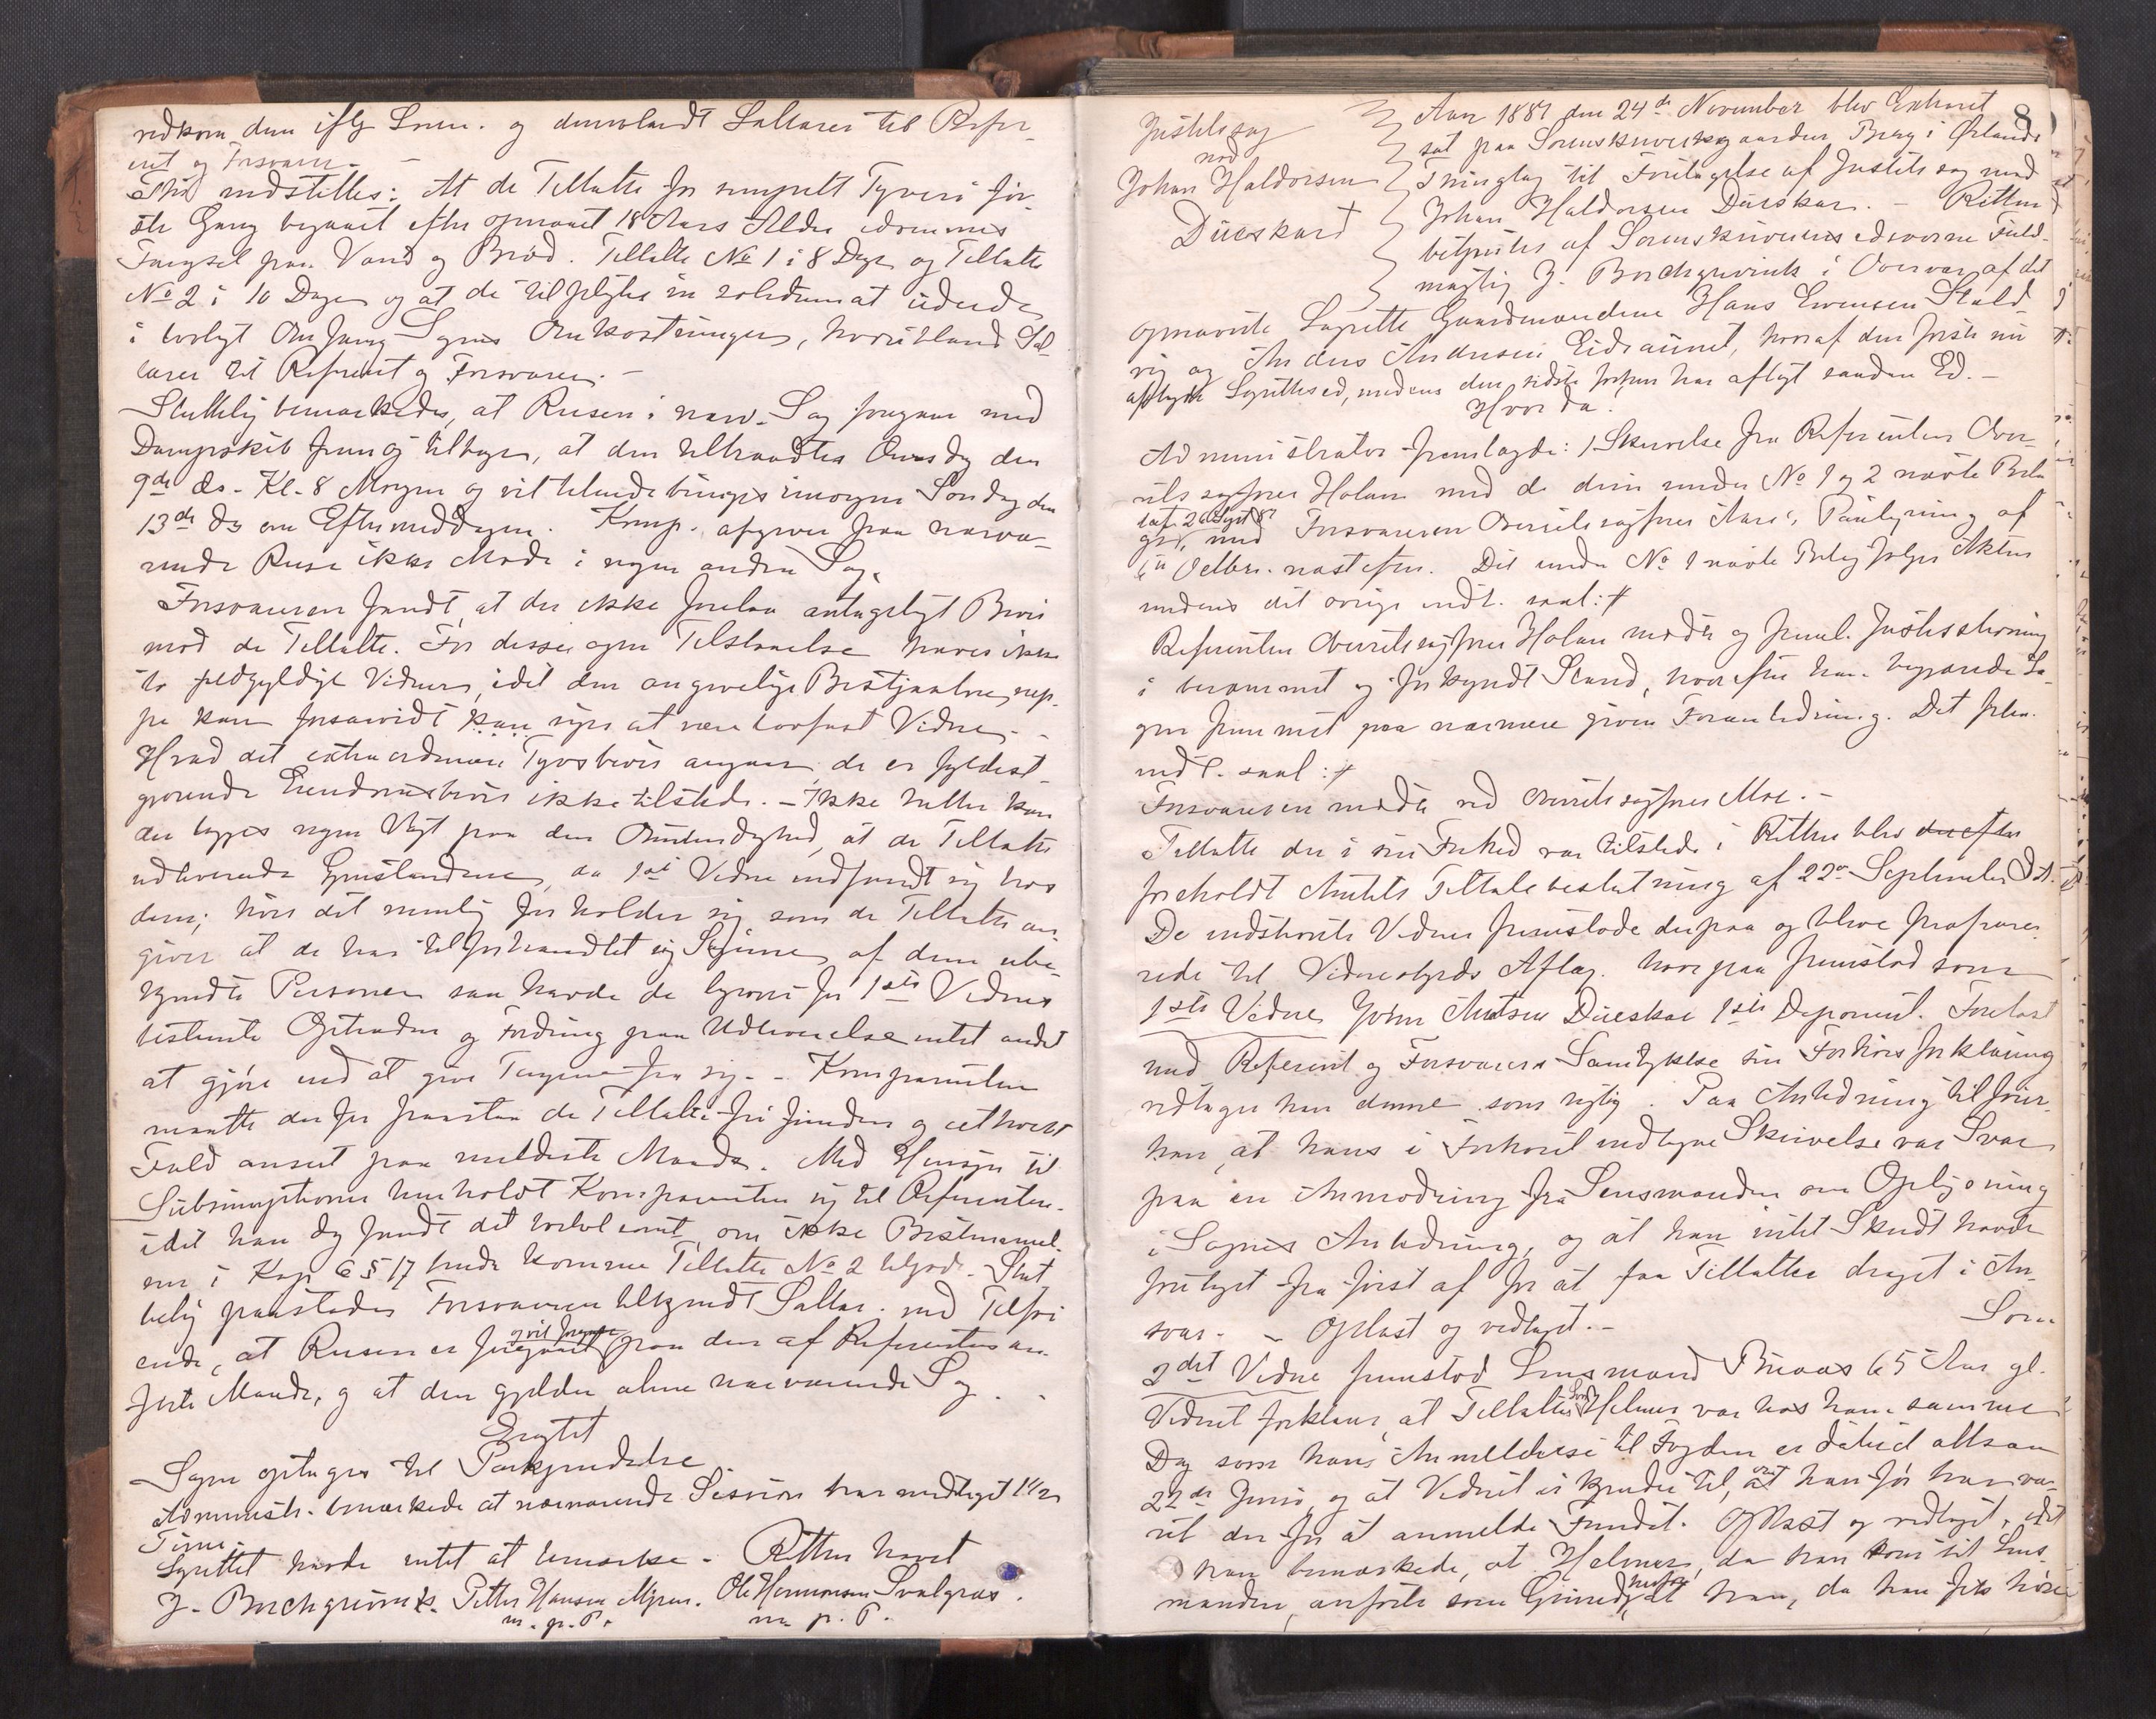 vedkom dem iflg Loven. og deriblandt Sallarer til Refer-
ent og Forsvarer. –
Thi indstilles: At de Tiltalte for simpelt Tyveri før-
ste Gang begaaet efter opnaaet 18 Aars Alder idømmes
Fængsel paa Vand og Brød. Tiltalte No 1 i 8 Dage og Tiltalte
No 2 i 10 Dage og at de tilpligtes in solidum at udrede
i lovligt Omfang Sagens Omkostninger, hvoriblandt Sal-
larer til Referent og Forsvarer. –
Sluttelig bemærkedes, at Reisen i nærv. Sag foregaar med
Dampskib frem og tilbage, at den tiltraadtes Onsdag den
9de ds. Kl. 8 Morgen og vil tilendebringes imorgen Søndag den
13de ds om Eftermiddagen. Komp. afgiver paa nærvæ-
rende Reise ikke Møde i nogen anden Sag.
Forsvareren fandt, at der ikke forelaa antageligt Bevis
mod de Tiltalte. For disses egen Tilstaaelse haves ikke
to fuldgyldige Vidner, idet den angivelige Bestjaalne, nep-
pe kan forsaavidt kan siges at være lovfast Vidne. –
Hvad det extraordinære Tyvsbevis angaar, da er fyldest-
gjørende Eiendomsbevis ikke tilstede. – Ikke heller kan
der lægges nogen Vægt paa den Omstændighed, at de Tiltalte
udleverede Gjenstandene, da 1ste Vidne indfandt sig hos
dem; hvis det nemlig forholder sig som de Tiltalte an-
giver at de har tilforhandlet sig Skjinnene af dem ube-
kjendte Personer saa havde de ligeoverfor 1ste Vidnes
bestemte Optræden og Fordring paa Udleverelse intet andet
at gjøre end at give Tingene fra sig. – Komparenten
maatte derfor paastaa de Tiltalte frifundne og i ethvert
Fald anseet paa mildeste Maade. Med Hensyn til
Subsumptionen henholdt Komparenten sig til Referenten.
idet han dog fandt det tvivlsomt, om ikke Bestemmel-
sen i Kap 6 § 17 burde komme Tiltalte No 2 tilgode. Slut-
telig paastodes Forsvareren tilkjendt Sallar. med Tilføi-
ende, at Reisen er foregaaet og vil foregaa paa den af Referenten an-
førte Maade, og at den gjælder alene nærværende Sag. –
Eragtet
Sagen optages til Paakjendelse
Administr. bemærkede at nærværende Session har medtaget 1 1/2
Time.
Lagrettet havde intet at bemærke. Retten hævet
J. Borchgrevink. Petter Hansen Myran. Ole Hermansen Svalgræs.
m. p. P. m. p. P.
8
Justitssag
mod
Johan Haldorsen
Dueskard
Aar 1887 den 24de November blev Extraret
sat paa Sorenskrivergaarden Berg i Ørlands
Thinglag til Foretagelse af Justitssag mod
Johan Haldorsen Dueskar. – Retten
betjentes af Sorenskriverens edsvorne Fuld-
mægtig J. Borchgrevink i Overvær af det
opnævnte Lagrette Gaardmændene Hans Evensen Stald-
vig og Anders Andersen Eidsaunet, hvoraf den første nu
aflagde Lagrettesed, medens den sidste forhen har aflagt saadan Ed. –
Hvorda:
Administrator fremlagde: 1 Skrivelse fra Referenten Over-
retssagfører Holan med de deri under No 1 og 2 nævnte Bila-
ge, med Forsvareren Overretssagfører Moe's Paategning af
6te Oktbr. næstefter. Det under No 1 nævnte Bilag følger Akten
medens det øvrige indt. saal: #
Referenten Overretssagfører Holan mødte og freml. Justitsstevning
i berammet og forkyndt Stand, hvorefter han begjærede Sa-
gen fremmet paa nærmere given Foranledning. Det frem.
indt. saal: #
Forsvareren mødte ved Overretssagfører Moe. –
Tiltalte der i sin Frihed var tilstede i Retten blev derefter
foreholdt Amtets Tiltalebeslutning af 22de September d. A.
De indstevnte Vidner fremstode derpaa og bleve præpare-
rede til Vidneseds Aflæg. hvorpaa fremstod som
1ste Vidne Jørn Antsen Dueskar 1ste Deponent. Forelæst
med Referent og Forsvarers Samtykke sin Forhørsforklaring
vedtager han denne som rigtig. Paa Anledning tilføier
han, at hans i Forhøret indtagne Skrivelse var Svar
paa en Anmodning fra Lensmanden om Oplysning
i Sagens Anledning, og at han intet Skridt havde
foretaget fra først af for at faa Tiltalte draget i An-
svar. – Oplæst og vedtaget. – Som
2det Vidne fremstod Lensmand Braas 65 Aar gl.
Vidnet forklarer, at Tiltaltes Søn Helmer var hos ham samme
Dag som hans Anmeldelse til Fogden er dateret altsaa
22de Juni, og at Vidnet ei kjender til, at han før har væ-
ret der for at anmelde Fundet. Oplæst og vedtaget, idet
han bemærkede, at Helmer, da han kom til Lens-
manden, anførte som Grund herfor, at han, da han fik høre